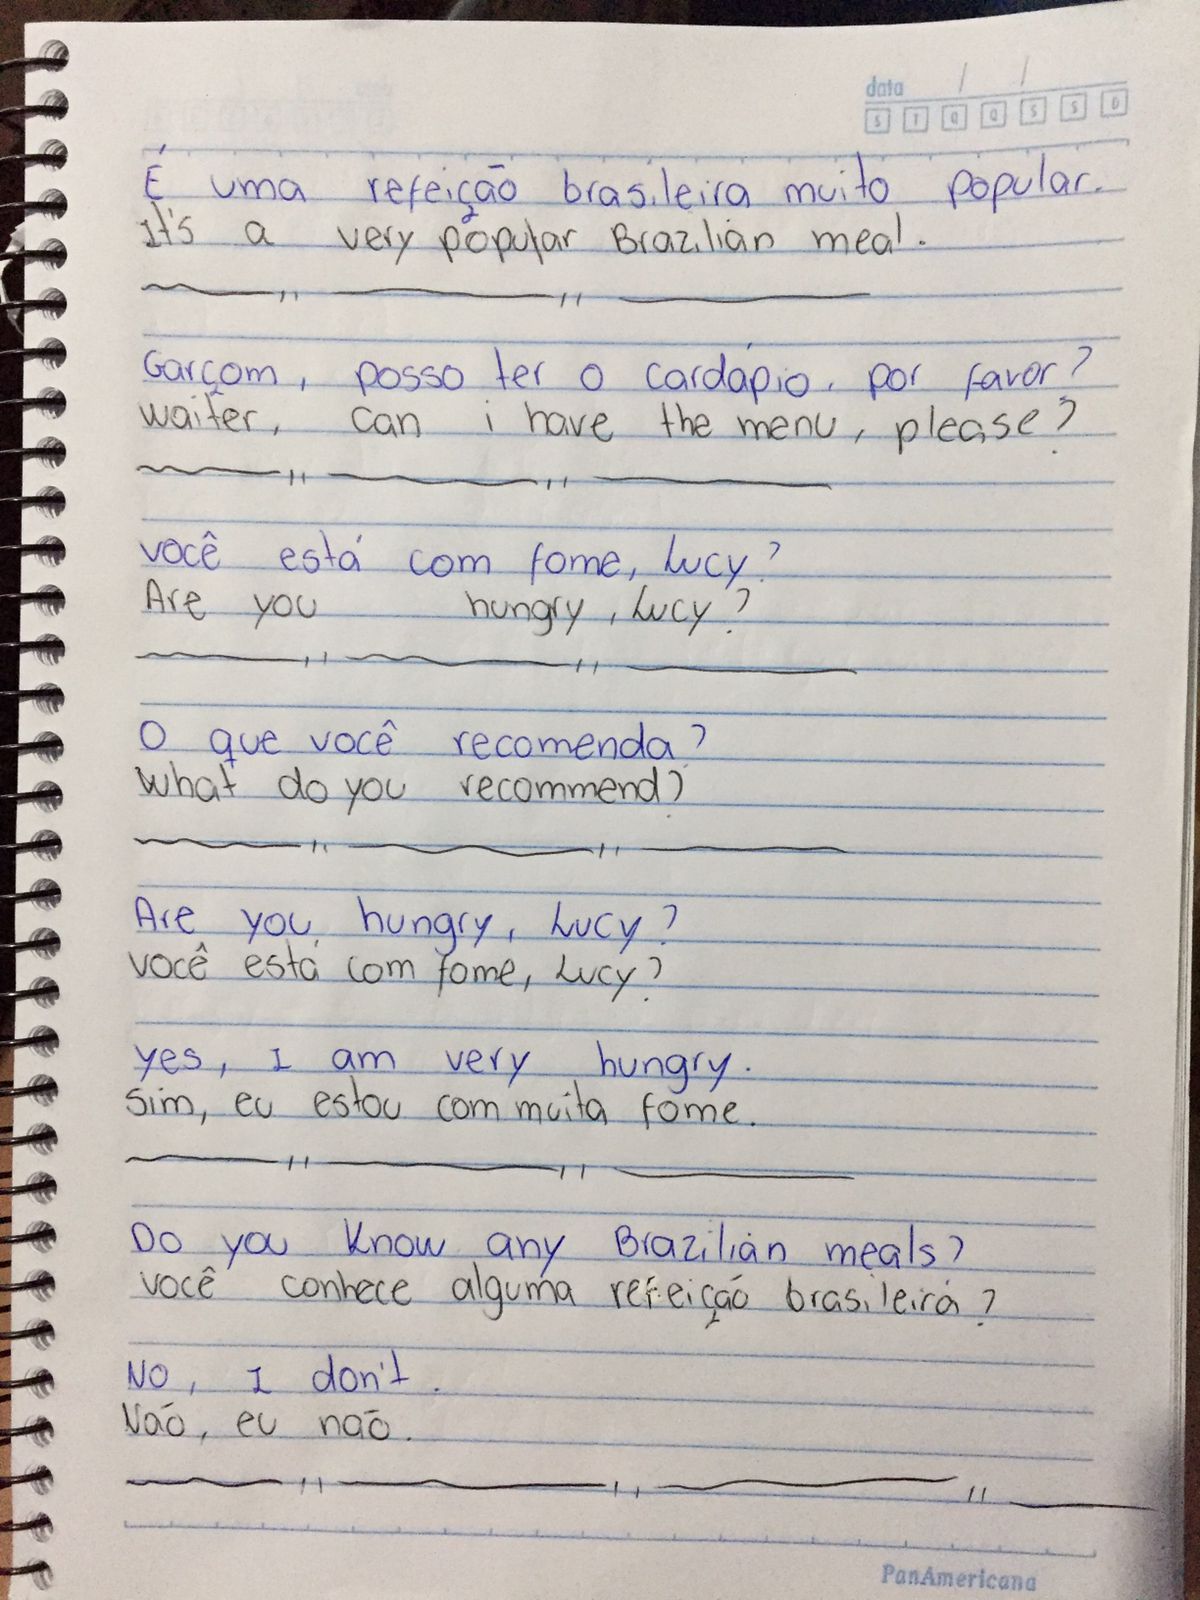 data / /
S T Q Q S S D
É uma refeição brasileira muito popular.
It's a very popular Brazilian meal.
Garçom, posso ter o cardápio, por favor?
waiter, can i have the menu, please?
você está com fome, Lucy?
Are you hungry, Lucy?
O que você recomenda?
What do you recommend?
Are you hungry, Lucy?
você está com fome, Lucy?
yes, I am very hungry.
Sim, eu estou com muita fome.
Do you know any Brazilian meals?
você conhece alguma refeição brasileira?
No, I don't.
Não, eu não.
PanAmericana